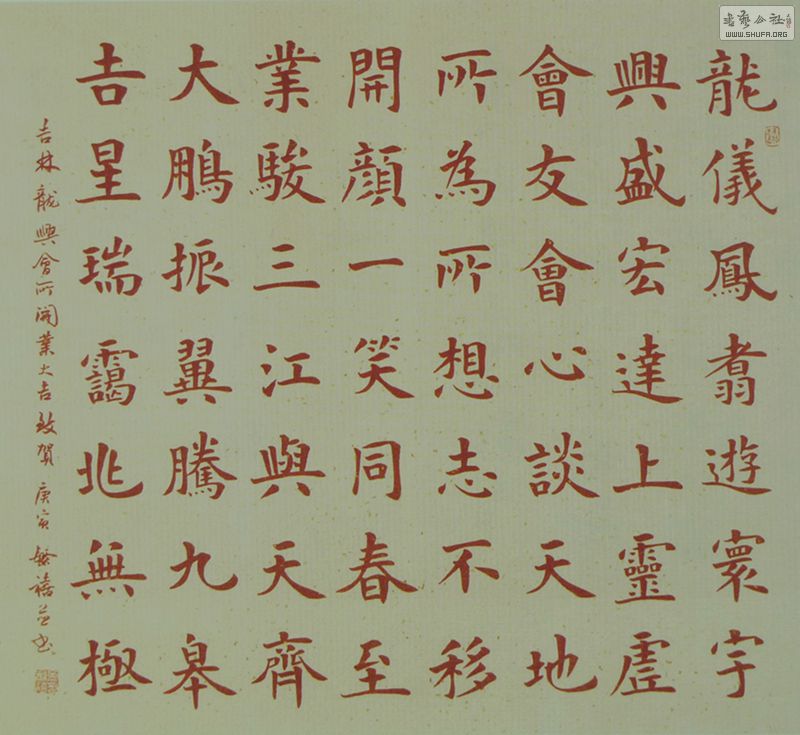 龍儀鳳翥遊寰宇
興盛宏達上靈虛
會友會心談天地
所為所想志不移
開顏一笑同春至
業駿三江與天齊
大鵬振翼騰九皋
吉星瑞靄兆無極
吉林龍興會所開業大吉致賀 庚寅
書藝公社
WWW.SHUFA.ORG